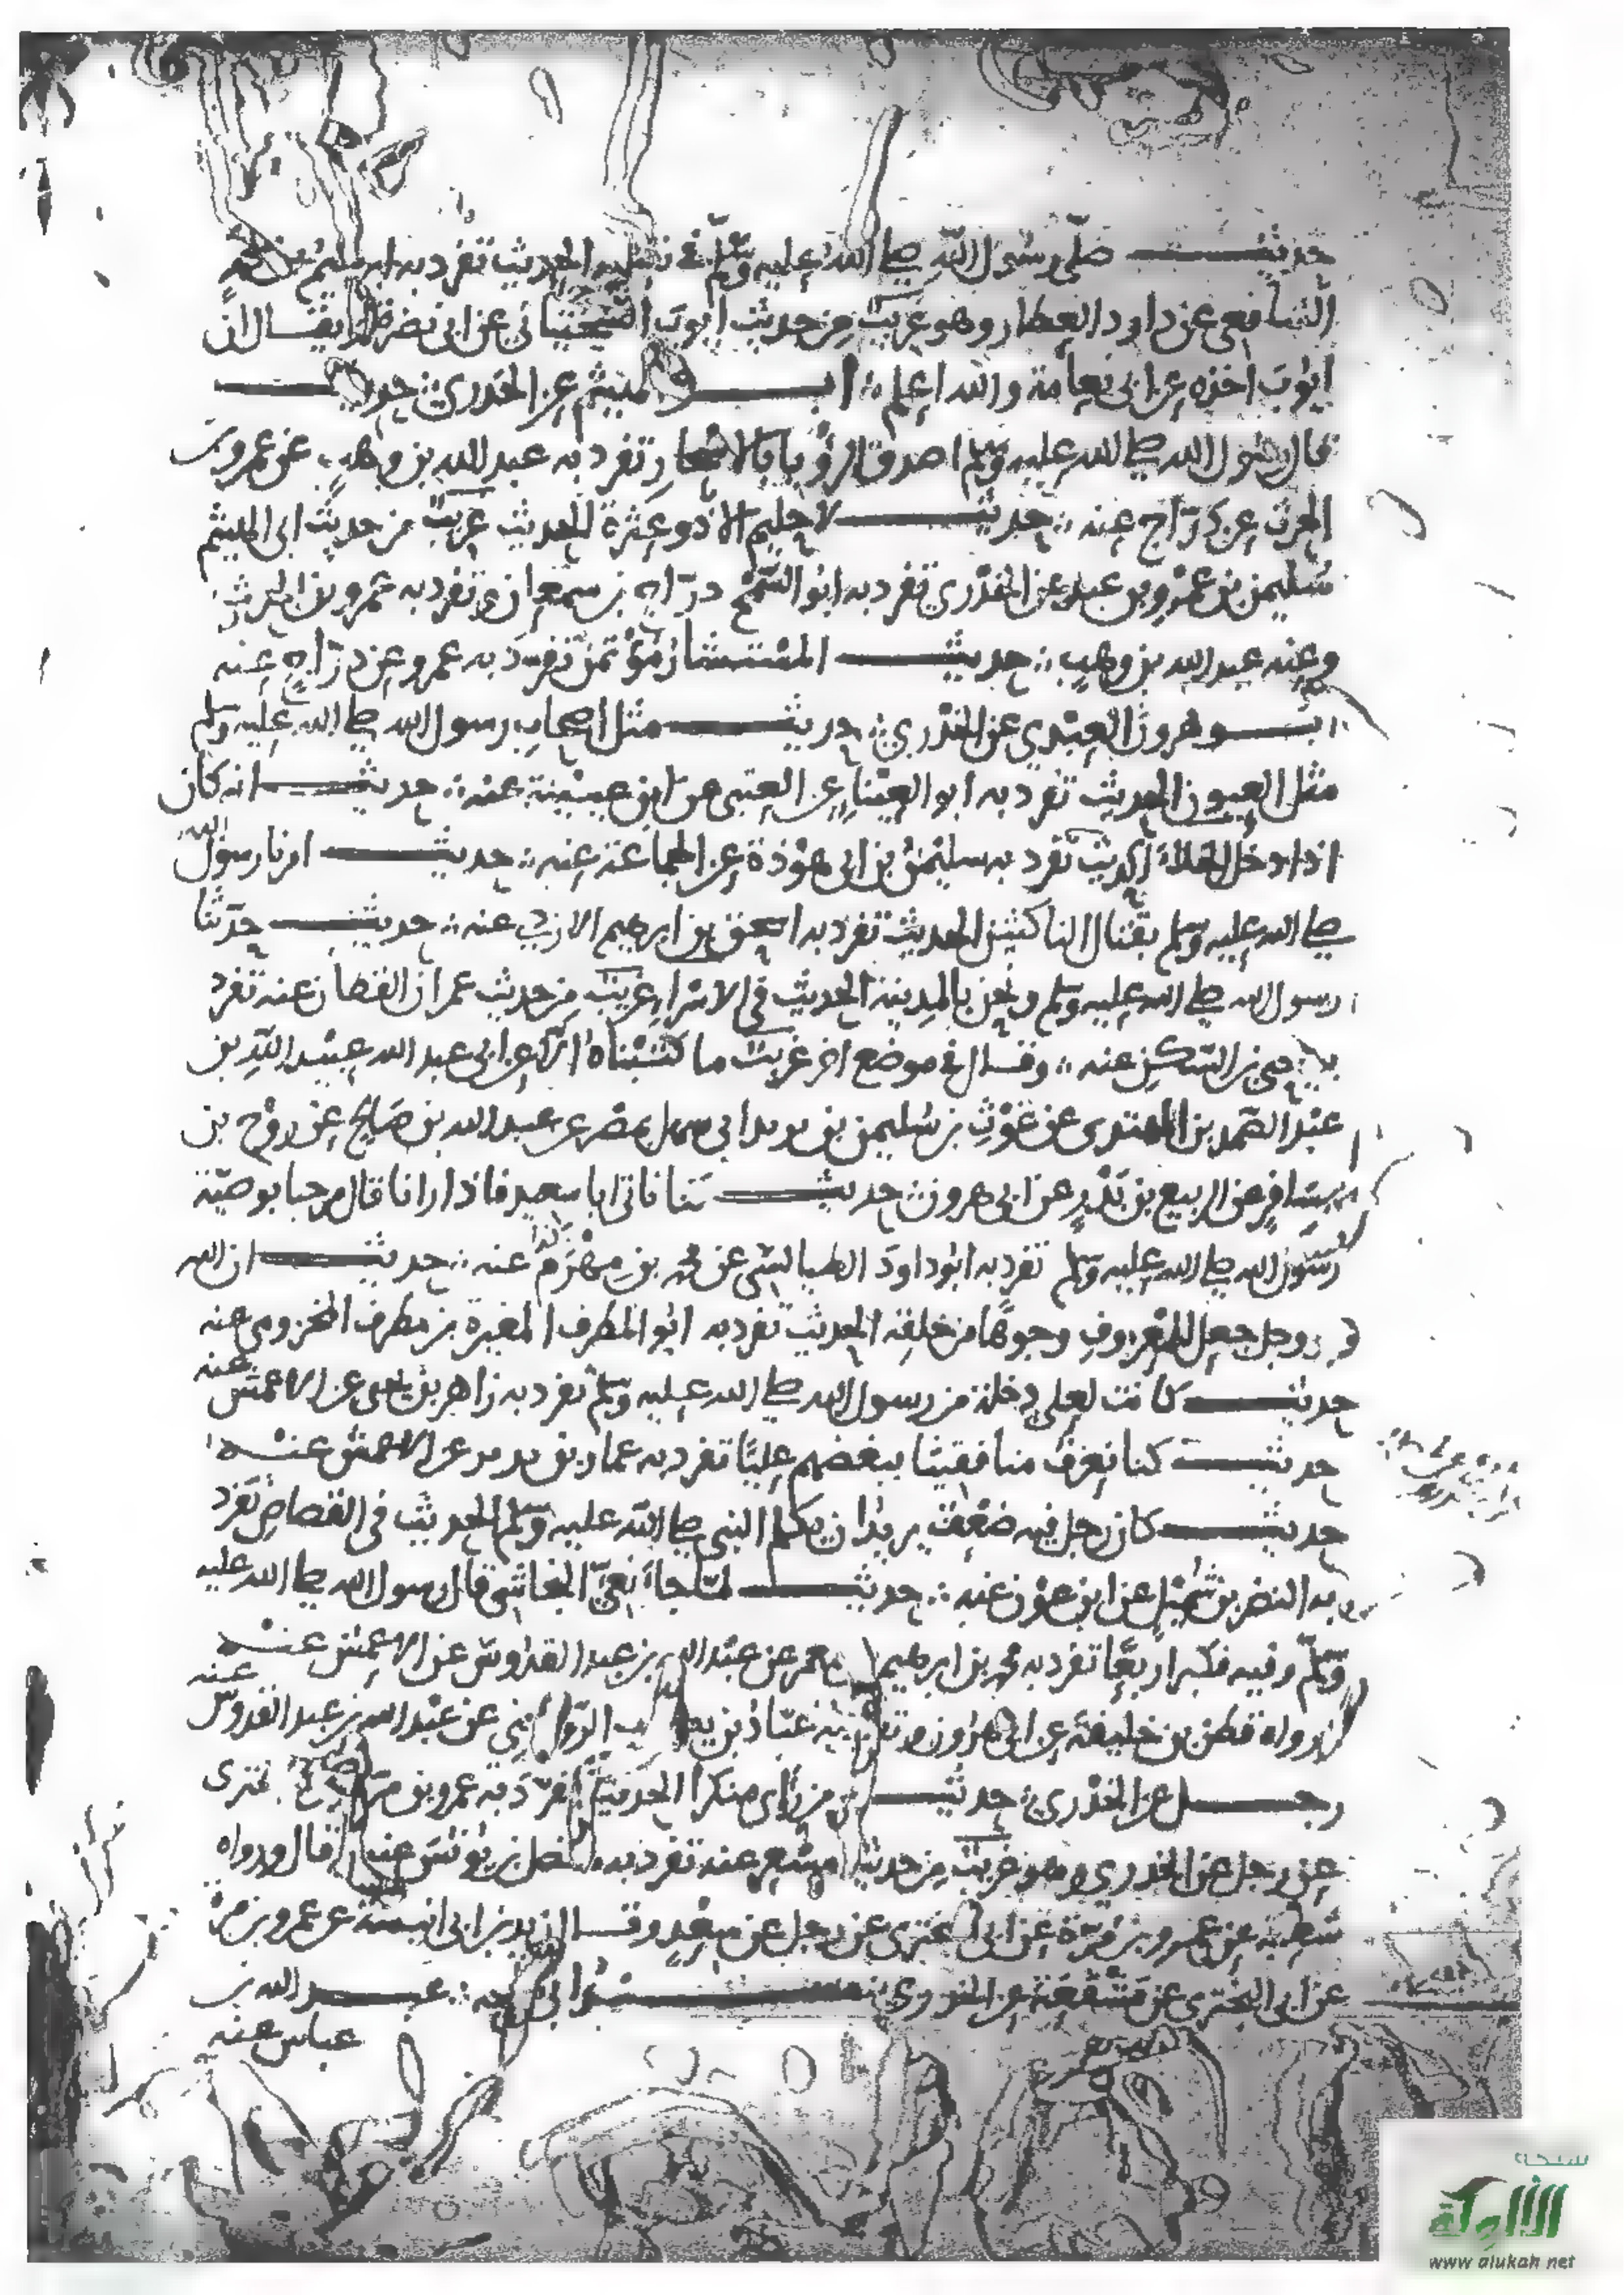 حديث صلى رسول الله صلى الله عليه وسلم في نعليه الحديث تفرد به ابرهيم بن محمد
الشافعي عن داود العطار وهو غريب من حديث ايوب السختياني عن ابي نضرة يقال ان
ايوب اخذه عن ابي نعامة والله اعلم ابو الهيثم عن الخدري حديث
قال رسول الله صلى الله عليه وسلم اصدق الرؤيا بالاسحار تفرد به عبد الله بن وهب عن عمرو بن
الحرث عن دراج عنه حديث لا حليم الا ذو عثرة الحديث غريب من حديث ابي الهيثم
سليمن بن عمرو بن عبد عن الخدري تفرد به ابو السمح دراج بن سمعان وتفرد به عمرو بن الحرث
وعنه عبد الله بن وهب حديث المستشار مؤتمن تفرد به عمرو عن دراج عنه
ابو هرون العبدي عن الخدري حديث مثل اصحاب رسول الله صلى الله عليه وسلم
مثل العيون الحديث تفرد به ابو العيناء عن العتبي عن ابن عيينة عنه حديث انه كان
اذا دخل الخلاء الحديث تفرد به سليمن بن ابي هوذة عن الجماعة عنه حديث امرنا رسول الله
صلى الله عليه وسلم بقتال الناكثين الحديث تفرد به اسحق بن ابرهيم الازدي عنه حديث حدثنا
رسول الله صلى الله عليه وسلم ونحن بالمدينة الحديث في الاسراء غريب من حديث عمران القطان عنه تفرد
به يحيى بن السكن عنه وقال في موضع اخر غريب ما كتبناه الا عن ابي عبد الله عبيد الله بن
عبد الصمد بن المهتدي عن غوث بن سليمن بن ابي سهل بمصر عن عبد الله بن صالح عن روح بن
مسافر عن الربيع بن بدر عن ابي هرون حديث كنا ناتي ابا سعيد فاذا رانا قال مرحبا بوصية
رسول الله صلى الله عليه وسلم تفرد به ابو داود الطيالسي عن محمد بن مهزم كذا عنه حديث ان الله
عز وجل جعل للمعروف وجوها من خلقه الحديث تفرد به ابو المطرف المغيرة بن مطرف المخزومي عنه
حديث كانت لعلي دخلة من رسول الله صلى الله عليه وسلم تفرد به زاهر بن يحيى عن الاعمش عنه
حديث كنا نعرف منافقينا ببغضهم عليا تفرد به عمار بن عن الاعمش عنه
حديث كان رجل فيه ضعف يريد ان يكلم النبي صلى الله عليه وسلم الحديث في القصاص تفرد
به النضر بن شميل عن ابن عون عنه حديث لما جاء نعي النجاشي قال رسول الله صلى الله عليه
وسلم وفيه فكبر اربعا تفرد به محمد بن ابرهيم معمر عن عبد الله بن عبد القدوس عن الاعمش عنه
رواه قطن بن خليفة عن ابي هرون وتفرد به عباد بن يعقوب الرواجني عن عبد الله بن عبد القدوس عنه
رجل عن الخدري حديث من راى منكرا الحديث تفرد به عمرو بن مرة
عن رجل عن الخدري وهو غريب من حديث مسعر عنه تفرد به بن يونس عنه قال ورواه
شعبة عن عمرو بن مرة عن ابي البختري عن رجل عن سعد وقال زيد بن ابي انيسة عن عمرو بن مرة
عن ابي البختري عن عن الخدري عبد الله بن
عباس عنه
شبكة
الألوكة
www alukah net